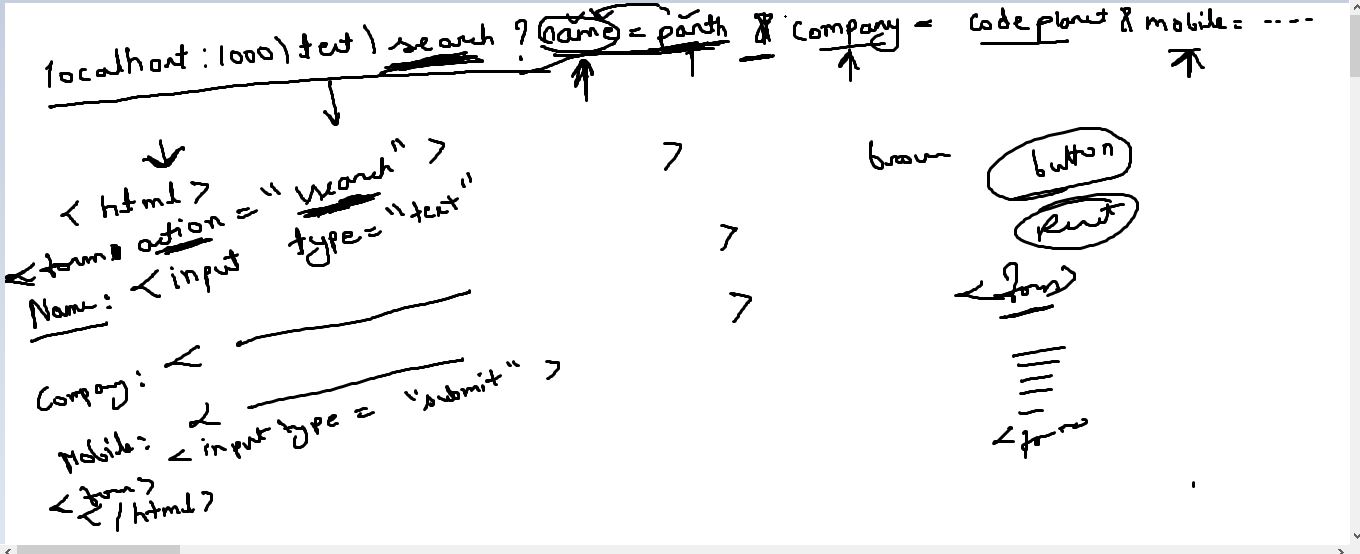 localhost:1000\test\search ? name = parth & company = codeplanet & mobile = ----
<html>
<form action = "search" >
Name: <input type = "text" >
Company: < >
Mobile: < >
<input type = "submit" >
<form>
</html>
button
<form>
<form